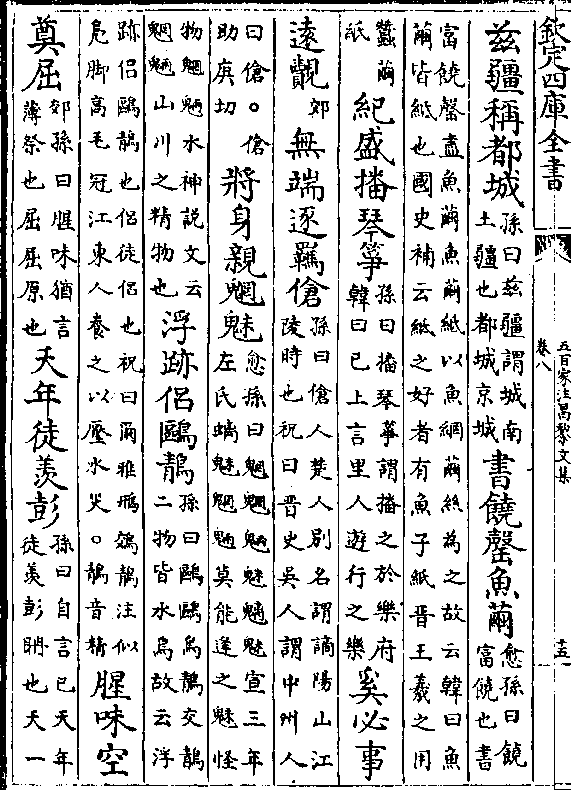 欽定四庫全書
五百家注昌黎文集
卷八
十五
兹疆稱都城
孫曰兹疆謂城南
土疆也都城京城
書饒罄魚繭
愈孫曰饒
富饒也書
富饒罄盡魚繭魚繭紙以魚網繭絲為之故云韓曰魚
繭皆紙也國史補云紙之好者有魚子紙晉王羲之用
蠶繭
紙
紀盛播琴箏
孫曰播琴箏謂播之於樂府
韓曰已上言里人遊行之樂
奚必事
遠覿
郊
無端逐羈傖
孫曰傖人楚人別名謂謫陽山江
陵時也祝曰晉史吳人謂中州人
曰傖。傖
助庚切
將身親魍魅
愈孫曰魍魍魎魅魑魅宣三年
左氏螭魅魍魎莫能逢之魅怪
物魍魎水神說文云
魍魎山川之精物也
浮跡侶鷗鶄
孫曰鷗鷗鳥鶄交鶄
二物皆水鳥故云浮
跡侶鷗鶄也侶徒侶也祝曰爾雅鳽鵁鶄注似
鳧脚高毛冠江東人養之以厭水災。鶄音精
腥味空
奠屈
郊孫曰腥味猶言
薄祭也屈屈原也
天年徒羨彭
孫曰自言已天年
徒羨彭聃也天一